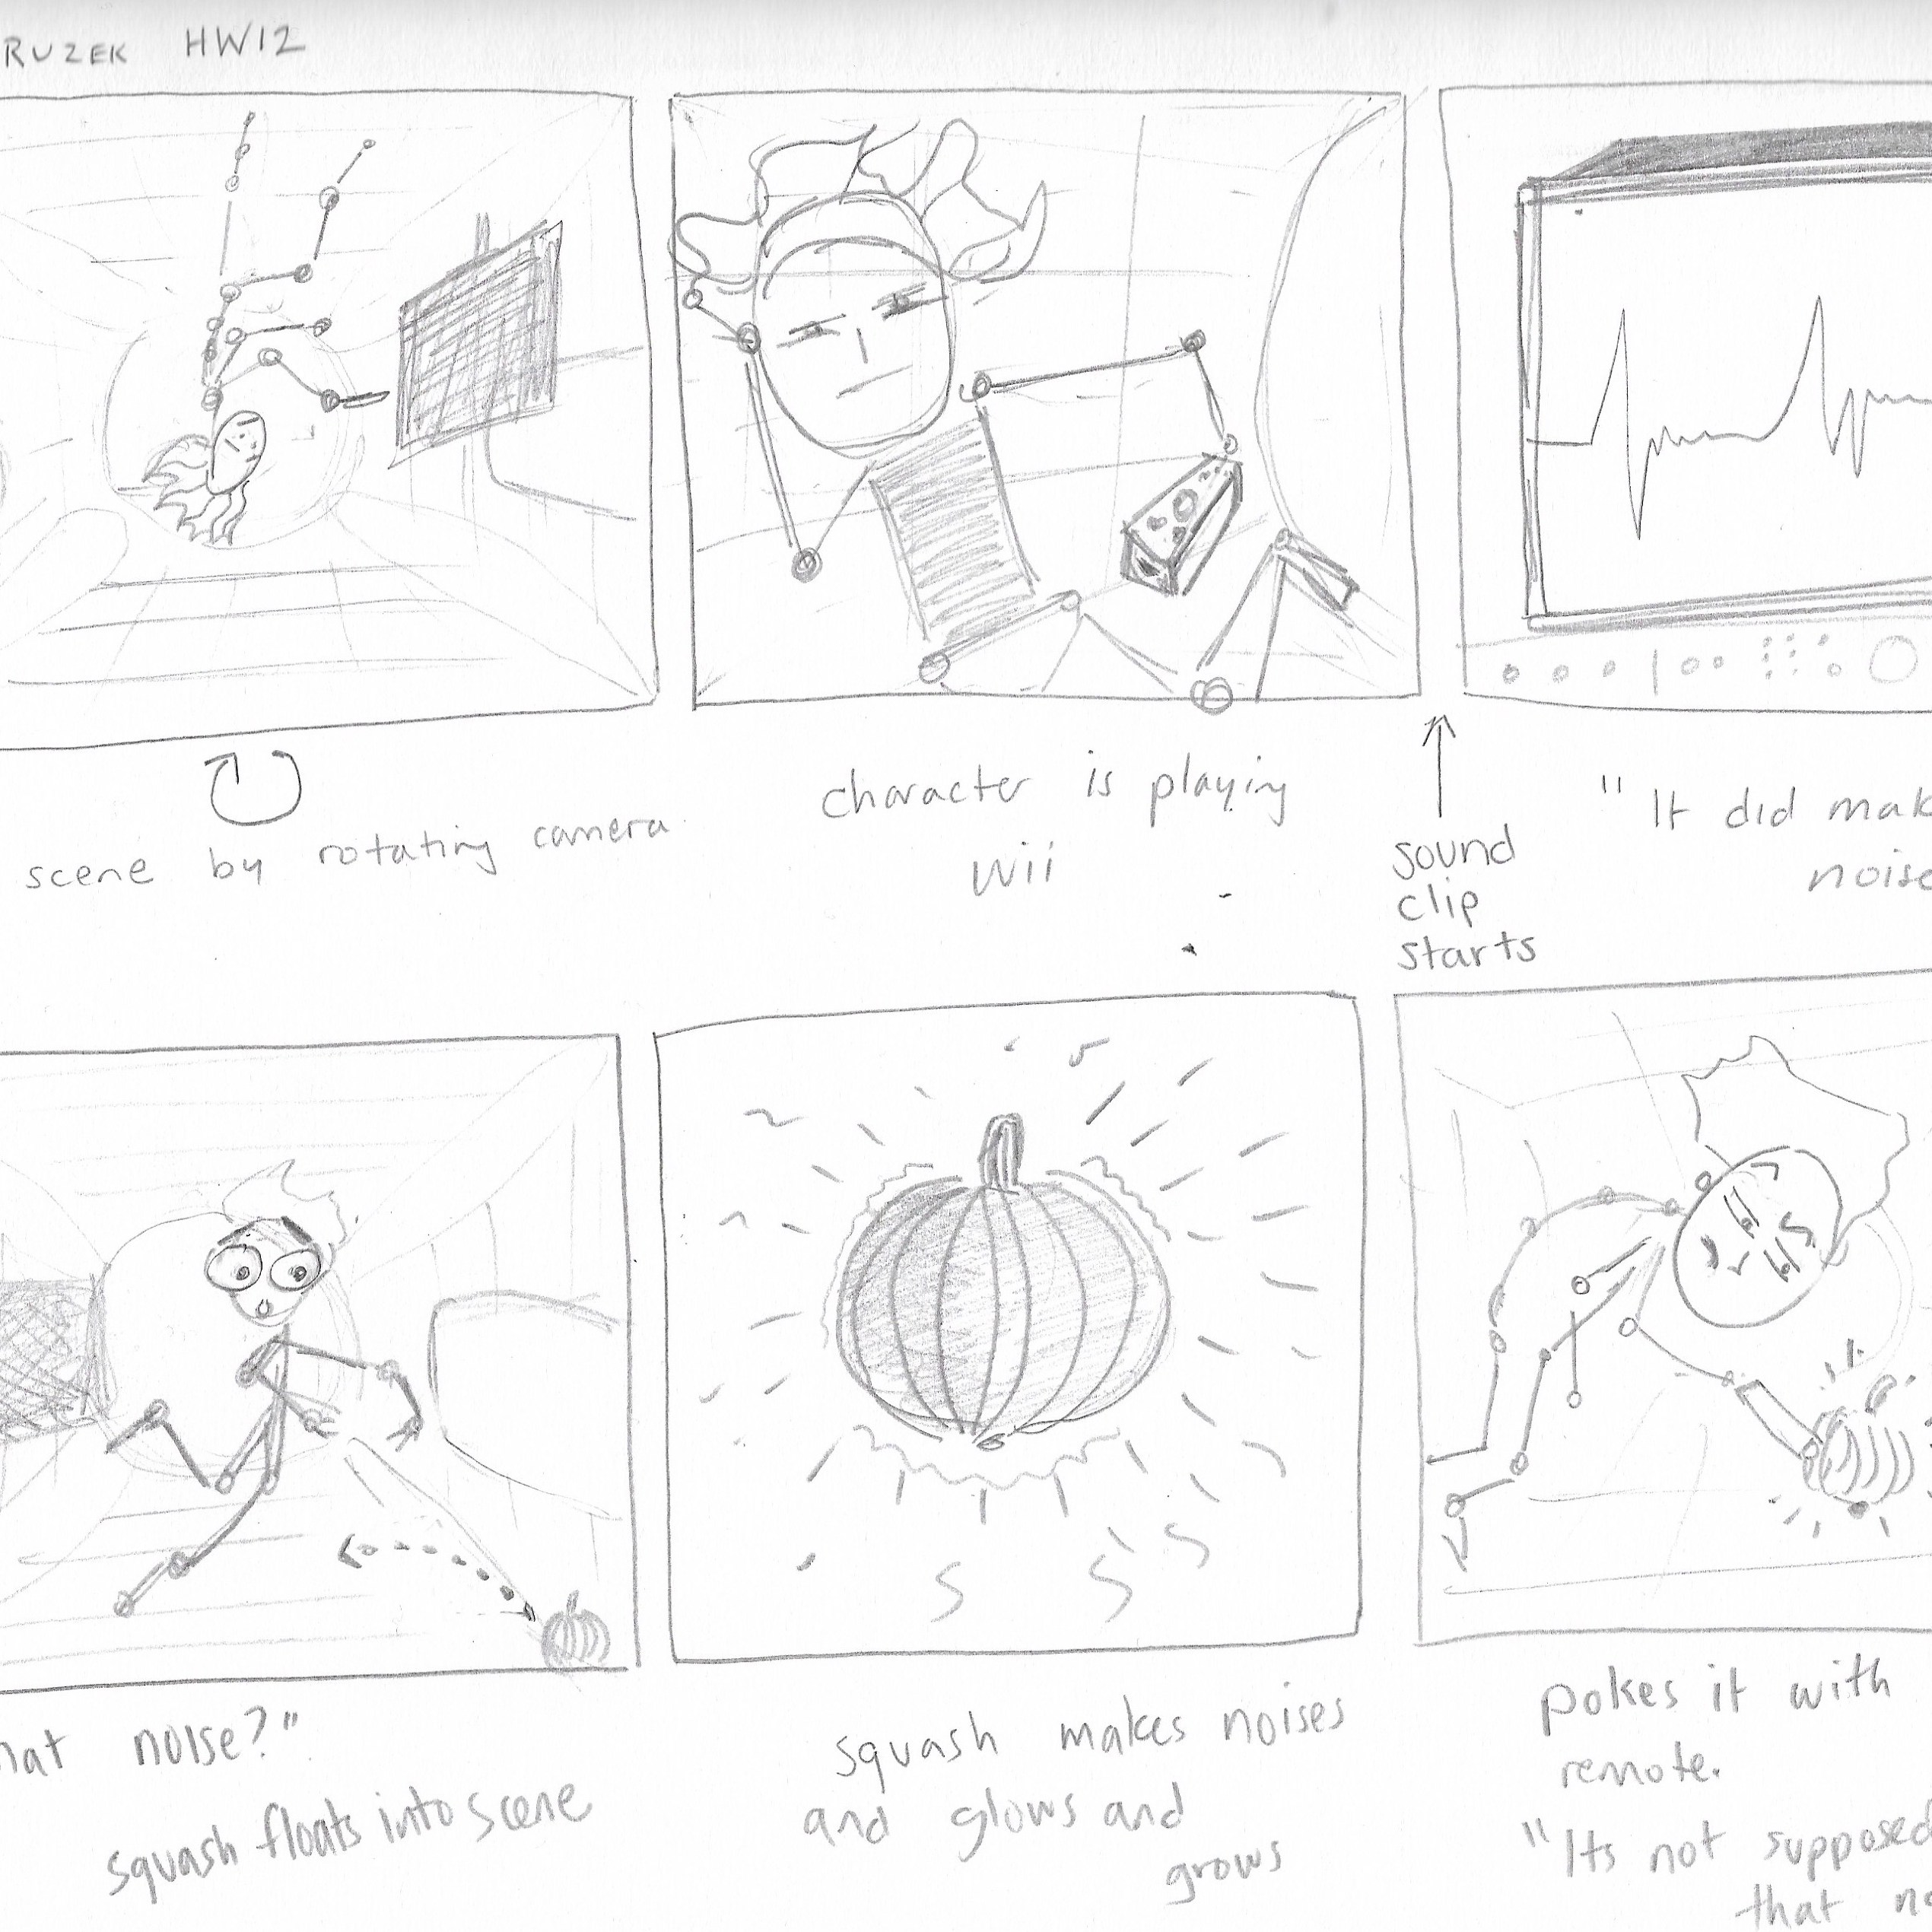 RUZEK HW12
scene by rotating camera
character is playing
wii
sound
clip
starts
"It did mak
noise
hat noise?"
squash floats into scene
squash makes noises
and glows and
grows
pokes it with
remote.
"Its not supposed
that no